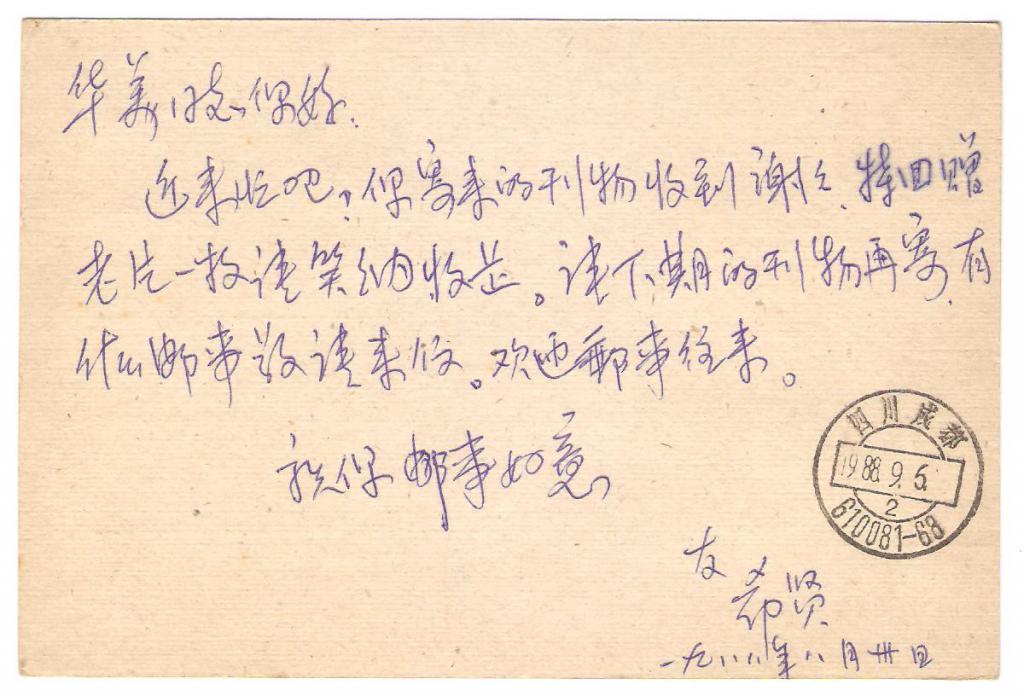 华美同志您好.
近来忙吧,您寄来的刊物收到谢谢.特回赠
老片一枚请笑纳收是。请下期的刊物再寄.有
什么邮事敬请来信。欢迎邮事往来。
祝您邮事如意
友
希贤
一九八八年八月卅日
四川成都
1988.9.5.
2
610081-68